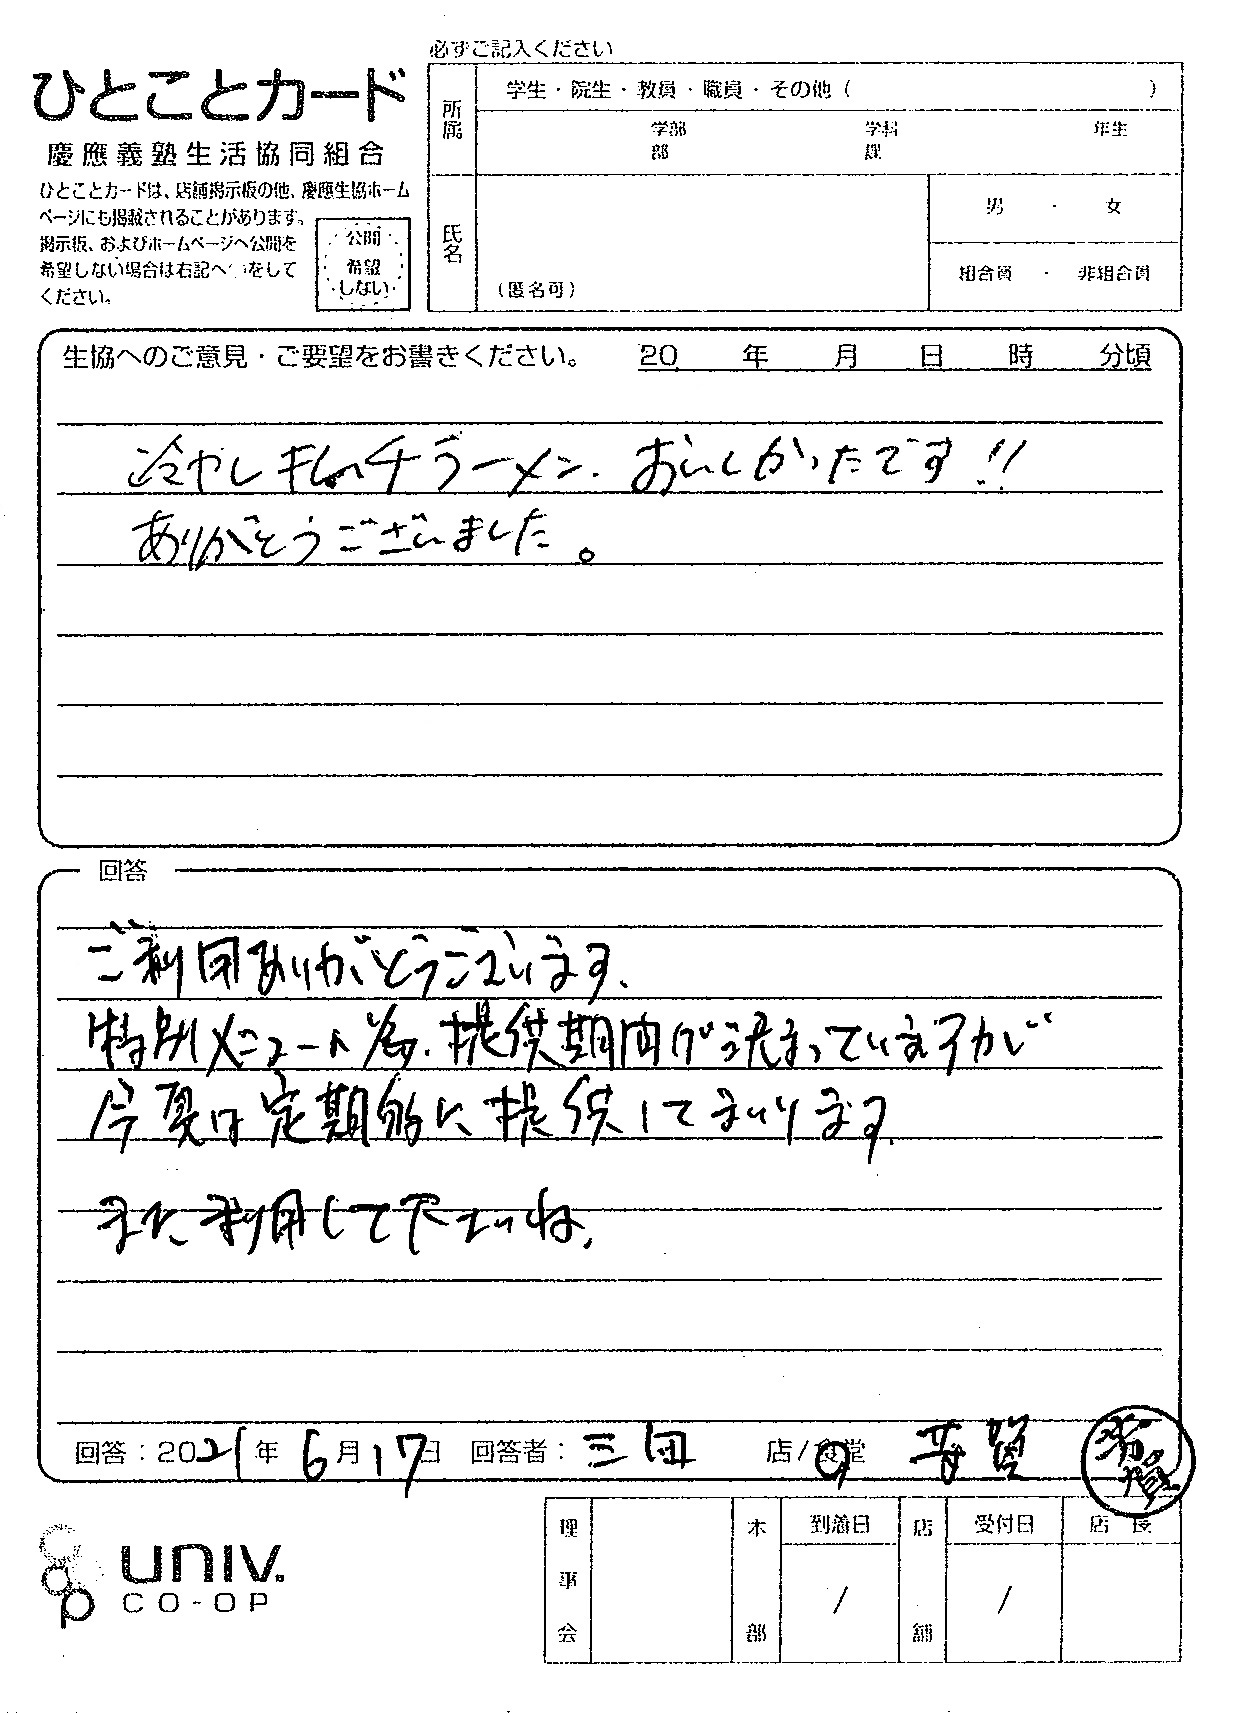 必ずご記入ください
ひとことカード
慶應義塾生活協同組合
ひとことカードは、店舗掲示板の他、慶應生協ホーム
ページにも掲載されることがあります。
掲示板、およびホームページへ公開を
希望しない場合は右記へ をして
ください。
公開
希望
しない
所属
学生・院生・教員・職員・その他(            )
学部 学科 年生
部 課
氏名
(匿名可)
男 ・ 女
組合員 ・ 非組合員
生協へのご意見・ご要望をお書きください。 20 年 月 日 時 分頃
冷やしキムチラーメン、おいしかったです!!
ありがとうございました。
回答
ご利用ありがとうございます。
特別メニューの為、提供期間が決まっていますが
今夏は定期的に提供してまいります。
また利用して下さいね。
回答:2021年 6月17日 回答者: 三田 店/食堂 芳賀
芳賀
univ.
CO-OP
理事会
本部
到着日
/
店舗
受付日
/
店長